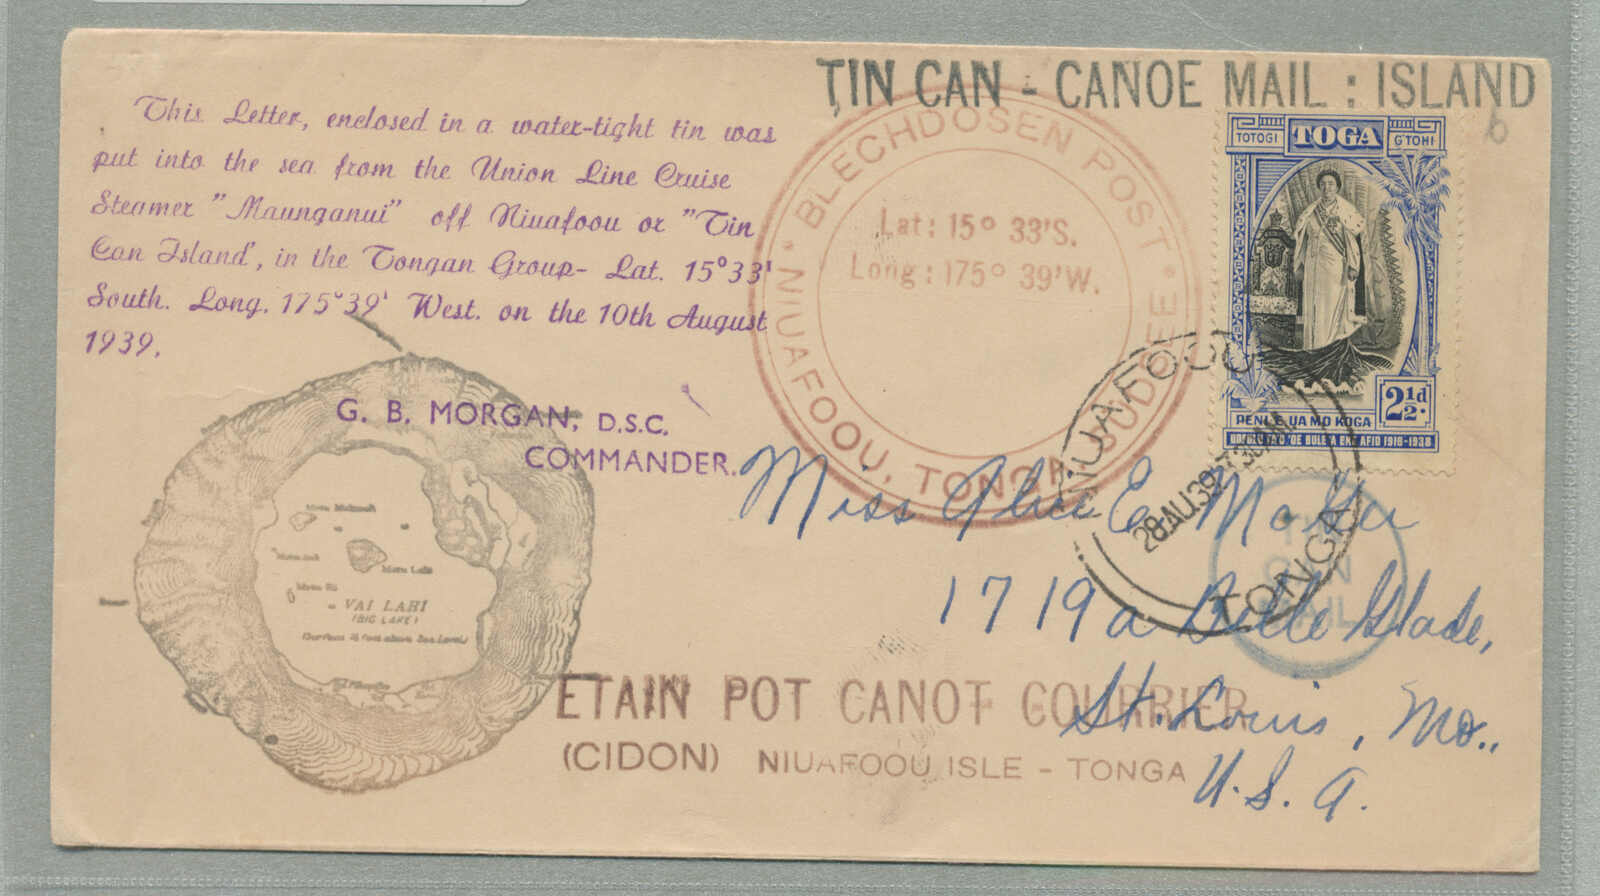 TIN CAN - CANOE MAIL : ISLAND
6
This Letter, enclosed in a water-tight tin was
put into the sea from the Union Line Cruise
Steamer "Maunganui" off Niuafoou or "Tin
Can Island', in the Tongan Group- Lat. 15°33'
South. Long. 175°39' West. on the 10th August
1939.
G. B. MORGAN, D.S.C.
COMMANDER.
BLECHDOSEN POST
Lat: 15° 33'S.
Long: 175° 39'W.
NIUAFOOU, TONGA, SUDSEE
TOTOGI TOGA G'TOHI
2½d.
UA MO KOGA
1918-1938
NIUAFOOU
28AU39 7 30AM
TONGA
TIN
CAN
MAIL
Miss Alice E.
1719a Belle Glade,
St. Louis, Mo.,
U.S.A.
Motu Lahi
VAI LAHI
(BIG LAKE)
(Surface 75 feet above Sea Level)
ETAIN POT CANOT COURRIER
(CIDON) NIUAFOOU ISLE - TONGA